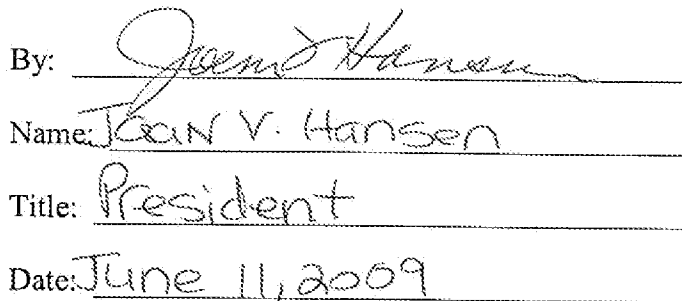 By: Hansen
Name: Joan V. Hansen
Title: President
Date: June 11, 2009